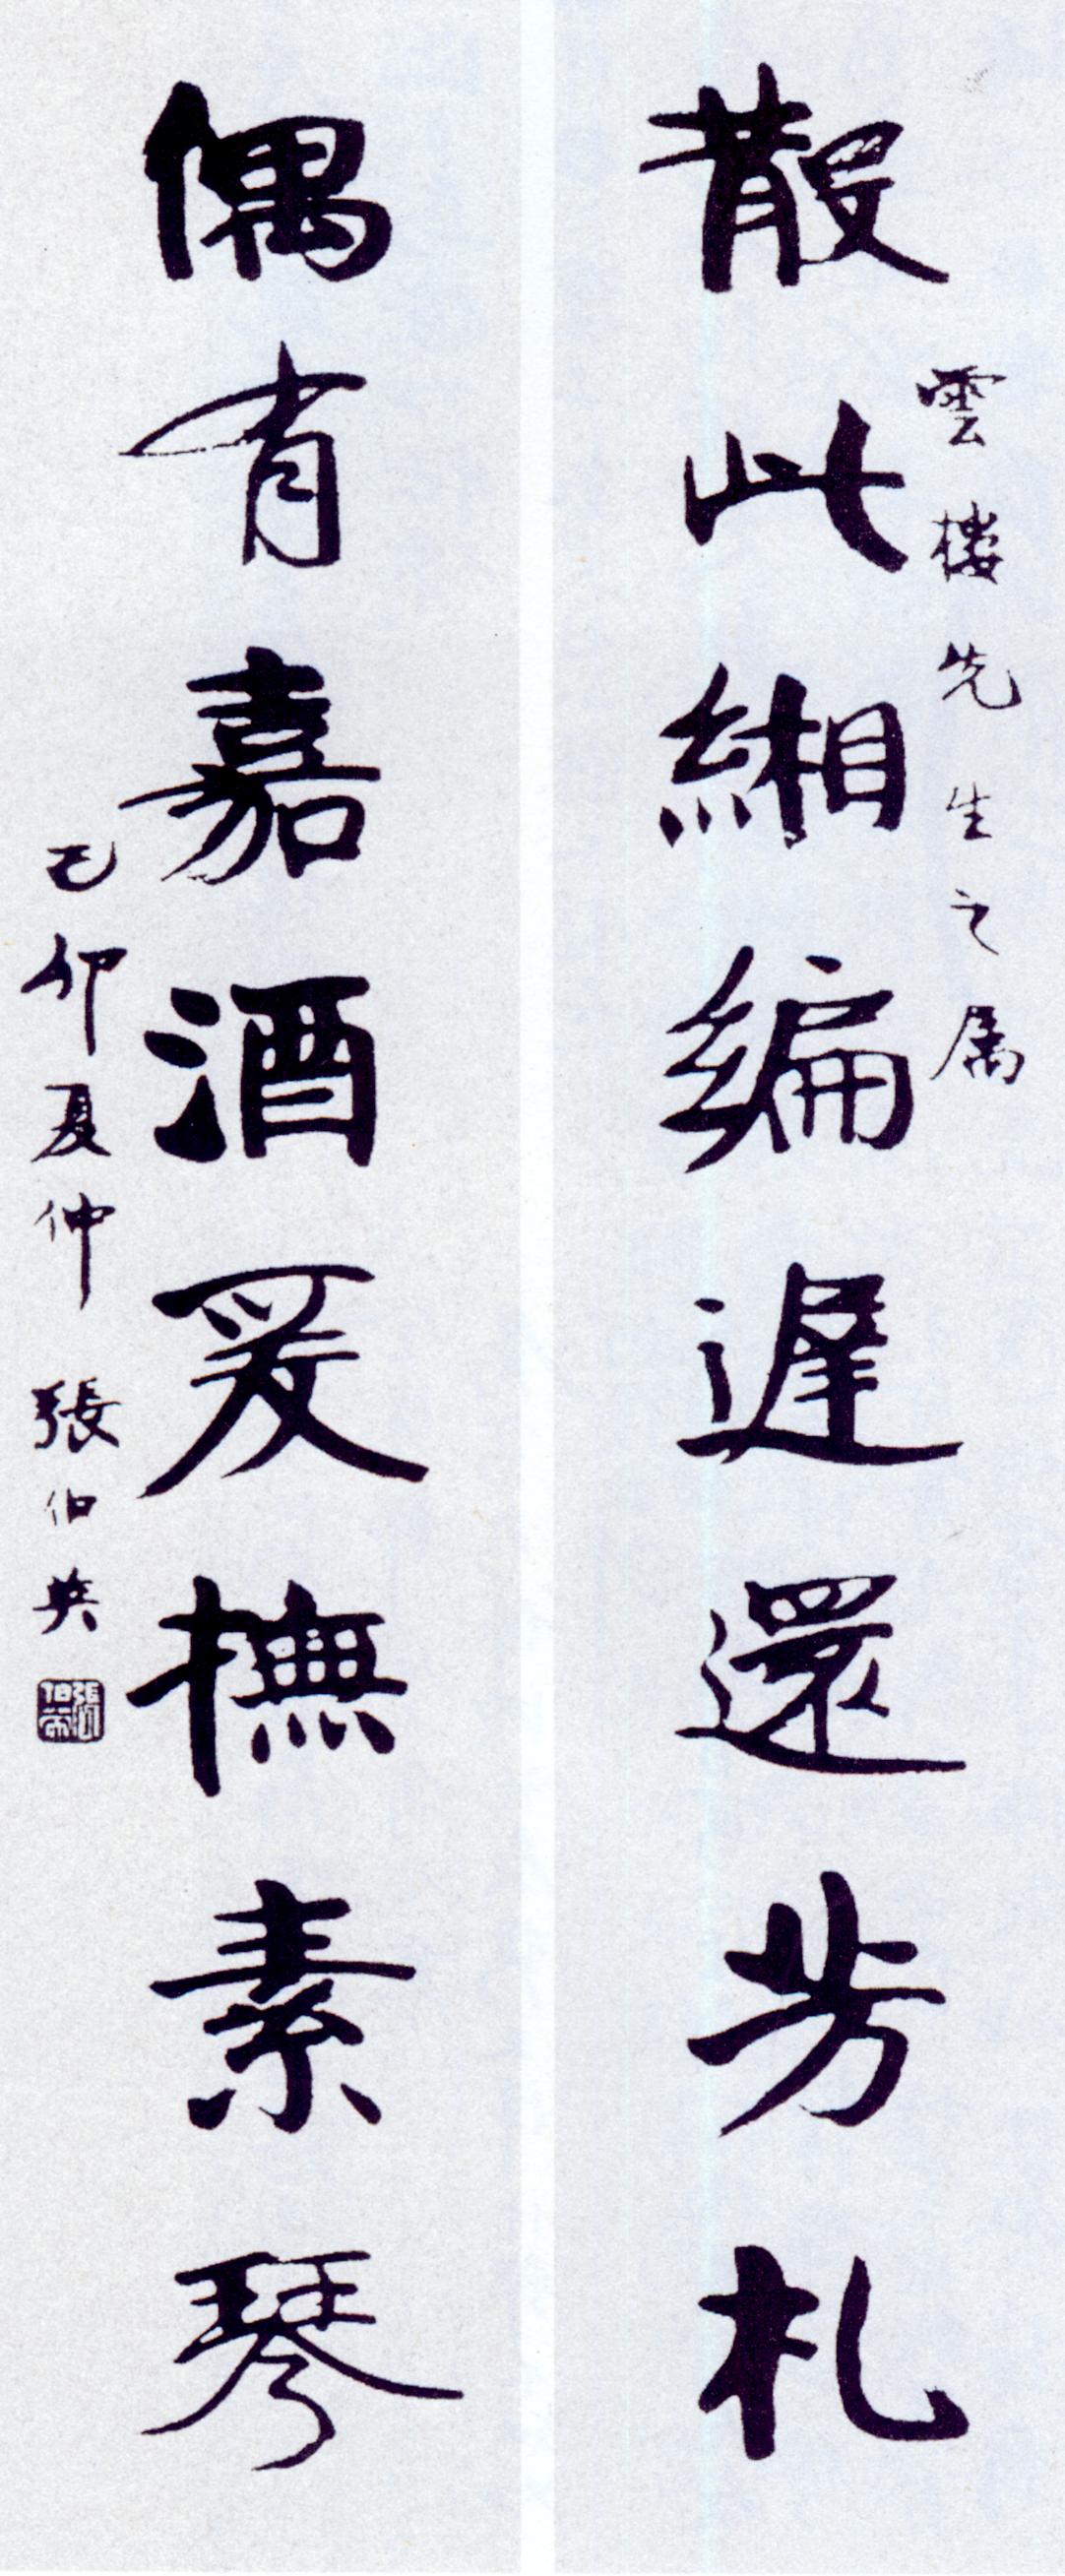 雲樓先生之属
散此緗編遲還芳札
偶有嘉酒爰撫素琴
己卯夏仲 張伯英
張伯英